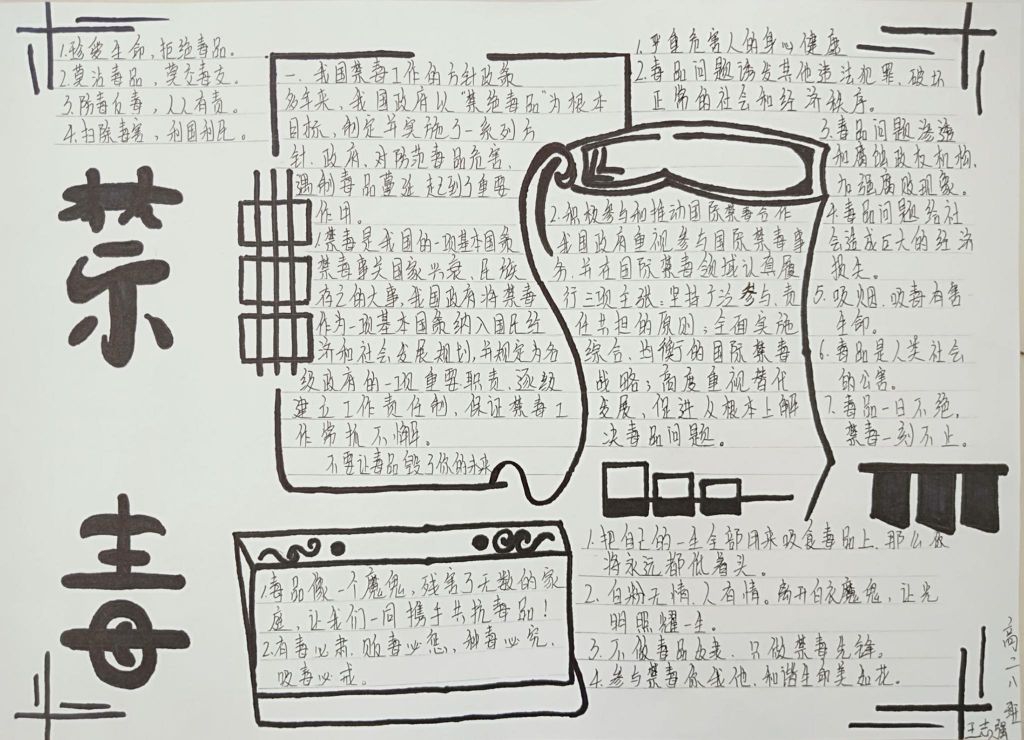 1.珍爱生命，拒绝毒品。
2.莫沾毒品，莫交毒友。
3.防毒反毒，人人有责。
4.扫除毒害，利国利民。
禁
毒
一、我国禁毒工作的方针政策
多年来，我国政府以“禁绝毒品”为根本
目标，制定并实施了一系列方
针、政府，对防范毒品危害，
遏制毒品蔓延起到了重要
作用。
1.禁毒是我国的一项基本国策
禁毒事关国家兴衰，民族
存亡的大事，我国政府将禁毒
作为一项基本国策纳入国民经
济和社会发展规划，并规定为各
级政府的一项重要职责，逐级
建立工作责任制，保证禁毒工
作常抓不懈。
不要让毒品毁了你的未来
2.积极参与和推动国际禁毒合作
我国政府重视参与国际禁毒事
务，并在国际禁毒领域认真履
行三项主张：坚持广泛参与、责
任共担的原则；全面实施
综合、均衡的国际禁毒
战略；高度重视替代
发展，促进从根本上解
决毒品问题。
1.严重危害人的身心健康
2.毒品问题诱发其他违法犯罪，破坏
正常的社会和经济秩序。
3.毒品问题渗透
和腐蚀政权机构，
加强腐败现象。
4.毒品问题给社
会造成巨大的经济
损失。
5.吸烟、吸毒有害
生命。
6.毒品是人类社会
的公害。
7.毒品一日不绝，
禁毒一刻不止。
1.毒品像一个魔鬼，残害了无数的家
庭，让我们一同携手共抗毒品！
2.有毒必肃、贩毒必惩、种毒必究、
吸毒必戒。
1.把自己的一生全部用来吸食毒品上，那么你
将永远都低着头。
2.白粉无情，人有情。离开白衣魔鬼，让光
明照耀一生。
3.不做毒品，只做禁毒先锋。
4.参与禁毒你我他，和谐生命美如花。
高二八班
王志强